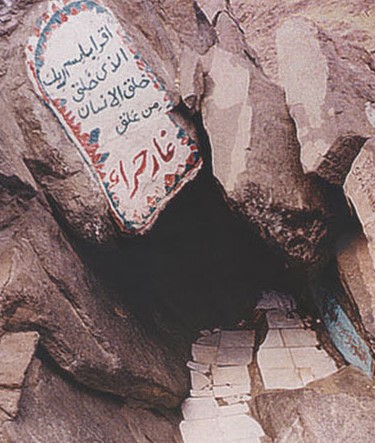 اقرا باسم ربك
الذي خلق
خلق الانسان
من علق
غار حراء